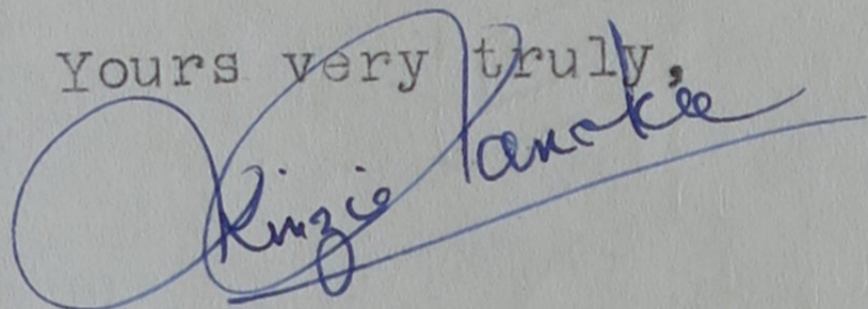 Yours very truly,
Kinzie Tanaka